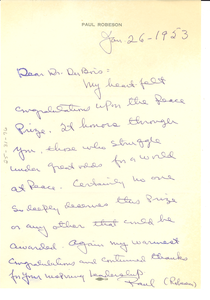 PAUL ROBESON
Jan 26-1953
Dear Dr. DuBois:
My heart-felt
congratulations upon the Peace
Prize. It honors through
you, those who struggle
under great odds for a world
at Peace. Certainly no one
so deeply deserves this Prize
or any other that could be
awarded. Again my warmest
congratulations and continued thanks
for your leadership.
Paul (Robeson)